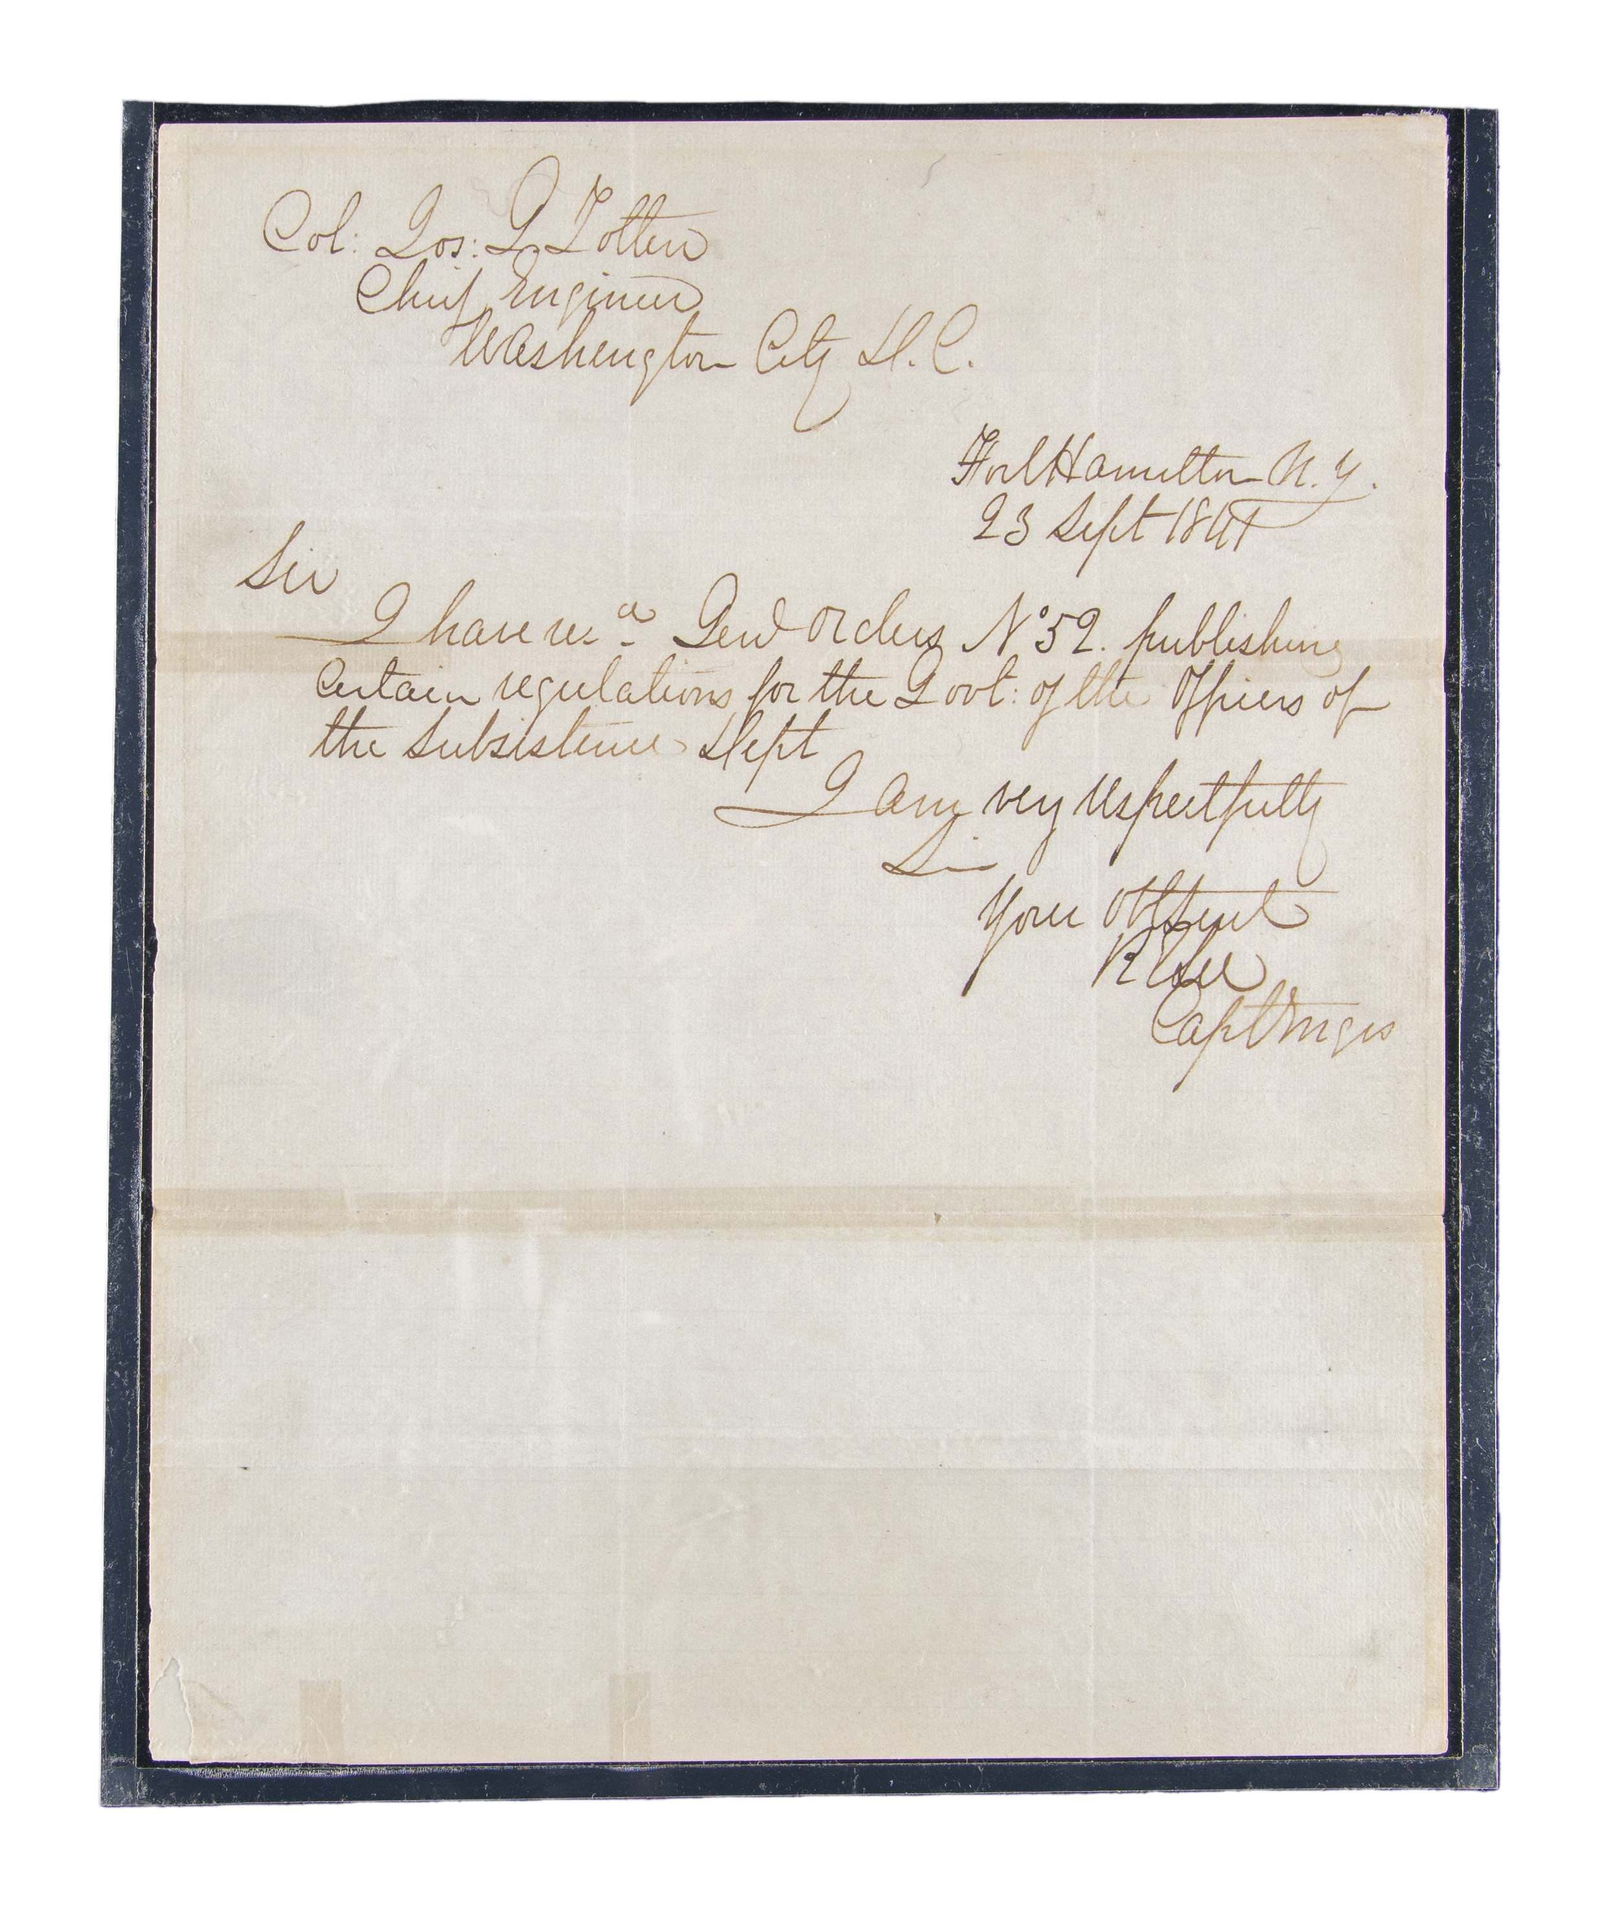 Col: Jos: G. Totten
Chief Engineer
Washington City D. C.
Fort Hamilton N. Y.
23 Sept 1841
Sir
I have recd Genl Orders No 52. publishing
certain regulations for the Govt: of the Officers of
the Subsistence Dept
I am very respectfully
Sir
Your Obt Servt
R E Lee
Capt Engrs